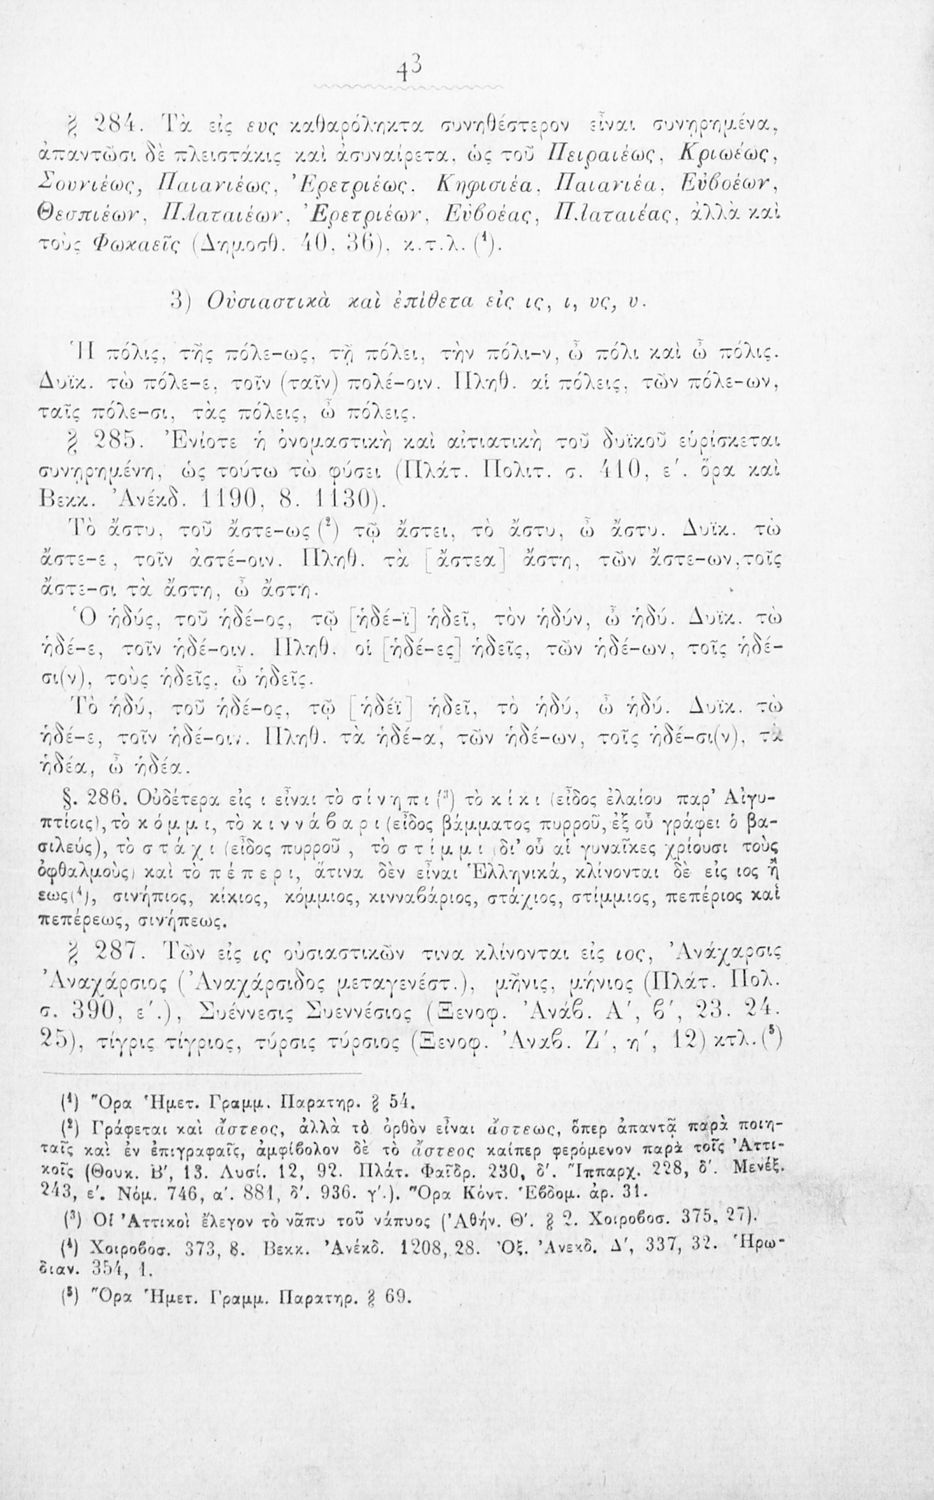 43
§ 284. Τὰ εἰς ευς καθαρόληκτα συνηθέστερον εἶναι συνῃρημένα,
ἀπαντῶσι δὲ πλειστάκις καὶ ἀσυναίρετα, ὡς τοῦ Πειραιέως, Κριωέως,
Σουνιέως, Παιανιέως, Ἐρετριέως. Κηφισιέα, Παιανιέα, Εὐβοέων,
Θεσπιέων, Πλαταιέων, Ἐρετριέων, Εὐβοέας, Πλαταιέας, ἀλλὰ καὶ
τοὺς Φωκαεῖς (Δημοσθ. 40, 36), κ.τ.λ. (¹).
3) Οὐσιαστικὰ καὶ ἐπίθετα εἰς ις, ι, υς, υ.
Ἡ πόλις, τῆς πόλε-ως, τῇ πόλει, τὴν πόλι-ν, ὦ πόλι καὶ ὦ πόλις.
Δυϊκ. τὼ πόλε-ε, τοῖν (ταῖν) πολέ-οιν. Πληθ. αἱ πόλεις, τῶν πόλε-ων,
ταῖς πόλε-σι, τὰς πόλεις, ὦ πόλεις.
§ 285. Ἐνίοτε ἡ ὀνομαστικὴ καὶ αἰτιατικὴ τοῦ δυϊκοῦ εὑρίσκεται
συνῃρημένη, ὡς τούτω τὼ φύσει (Πλάτ. Πολιτ. σ. 410, ε'. ὅρα καὶ
Βεκκ. Ἀνέκδ. 1190, 8. 1130).
Τὸ ἄστυ, τοῦ ἄστε-ως (²) τῷ ἄστει, τὸ ἄστυ, ὦ ἄστυ. Δυϊκ. τὼ
ἄστε-ε, τοῖν ἀστέ-οιν. Πληθ. τὰ [ἄστεα] ἄστη, τῶν ἄστε-ων, τοῖς
ἄστε-σι τὰ ἄστη, ὦ ἄστη.
Ὁ ἡδύς, τοῦ ἡδέ-ος, τῷ [ἡδέ-ϊ] ἡδεῖ, τὸν ἡδύν, ὦ ἡδύ. Δυϊκ. τὼ
ἡδέ-ε, τοῖν ἡδέ-οιν. Πληθ. οἱ [ἡδέ-ες] ἡδεῖς, τῶν ἡδέ-ων, τοῖς ἡδέ-
σι(ν), τοὺς ἡδεῖς, ὦ ἡδεῖς.
Τὸ ἡδύ, τοῦ ἡδέ-ος, τῷ [ἡδέϊ] ἡδεῖ, τὸ ἡδύ, ὦ ἡδύ. Δυϊκ. τὼ
ἡδέ-ε, τοῖν ἡδέ-οιν. Πληθ. τὰ ἡδέ-α, τῶν ἡδέ-ων, τοῖς ἡδέ-σι(ν), τὰ
ἡδέα, ὦ ἡδέα.
§. 286. Οὐδέτερα εἰς ι εἶναι τὸ σίνηπι (³) τὸ κίκι (εἶδος ἐλαίου παρ' Αἰγυ-
πτίοις), τὸ κόμμι, τὸ κιννάβαρι (εἶδος βάμματος πυρροῦ, ἐξ οὗ γράφει ὁ βα-
σιλεύς), τὸ στάχι (εἶδος πυρροῦ, τὸ στίμμι (δι' οὗ αἱ γυναῖκες χρίουσι τοὺς
ὀφθαλμοὺς) καὶ τὸ πέπερι, ἅτινα δὲν εἶναι Ἑλληνικά, κλίνονται δὲ εἰς ιος ἢ
εως(⁴), σινήπιος, κίκιος, κόμμιος, κινναβάριος, στάχιος, στίμμιος, πεπέριος καὶ
πεπέρεως, σινήπεως.
§ 287. Τῶν εἰς ις οὐσιαστικῶν τινα κλίνονται εἰς ιος, Ἀνάχαρσις
Ἀναχάρσιος (Ἀναχάρσιδος μεταγενέστ.), μῆνις, μήνιος (Πλάτ. Πολ.
σ. 390, ε'.), Συέννεσις Συεννέσιος (Ξενοφ. Ἀνάβ. Α', β', 23. 24.
25), τίγρις τίγριος, τύρσις τύρσιος (Ξενοφ. Ἀναβ. Ζ', η', 12) κτλ. (⁵)
(¹) Ὅρα Ἡμετ. Γραμμ. Παρατηρ. § 54.
(²) Γράφεται καὶ ἄστεος, ἀλλὰ τὸ ὀρθὸν εἶναι ἄστεως, ὅπερ ἀπαντᾷ παρὰ ποιη-
ταῖς καὶ ἐν ἐπιγραφαῖς, ἀμφίβολον δὲ τὸ ἄστεος καίπερ φερόμενον παρὰ τοῖς Ἀττι-
κοῖς (Θουκ. Β', 13. Λυσί. 12, 92. Πλάτ. Φαῖδρ. 230, δ'. Ἵππαρχ. 228, δ'. Μενέξ.
243, ε'. Νόμ. 746, α'. 881, δ'. 936. γ'.). Ὅρα Κόντ. Ἑβδομ. ἀρ. 31.
(³) Οἱ Ἀττικοὶ ἔλεγον τὸ νᾶπυ τοῦ νάπυος (Ἀθήν. Θ'. § 2. Χοιροβοσ. 375, 27).
(⁴) Χοιροβοσ. 373, 8. Βεκκ. Ἀνέκδ. 1208, 28. Ὀξ. Ἀνεκδ. Δ', 337, 32. Ἡρω-
διαν. 354, 1.
(⁵) Ὅρα Ἡμετ. Γραμμ. Παρατηρ. § 69.